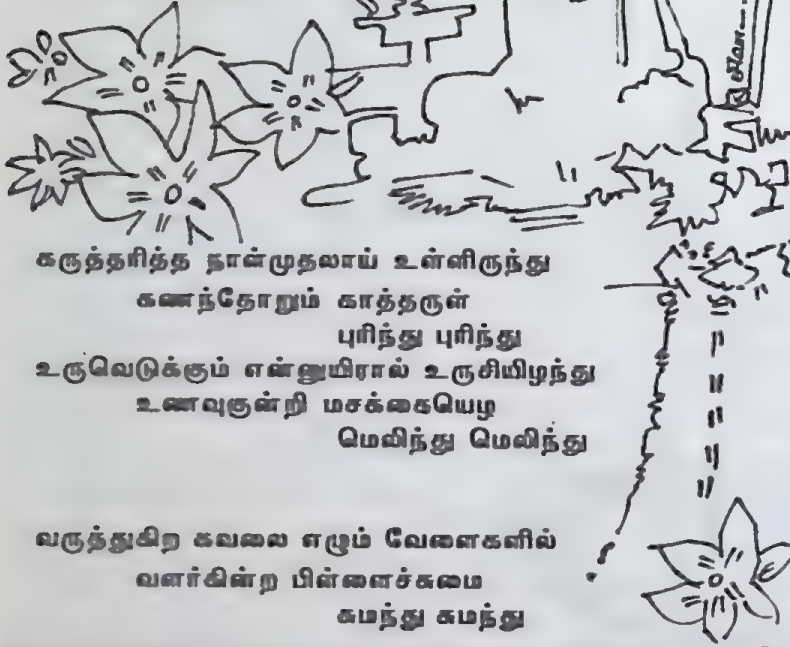 கருத்தரித்த நாள்முதலாய் உள்ளிருந்து
கணந்தோறும் காத்தருள்
புரிந்து புரிந்து
உருவெடுக்கும் என்னுயிரால் உருசியிழந்து
உணவுகுன்றி மசக்கையெழ
மெலிந்து மெலிந்து
வருத்துகிற கவலை எழும் வேளைகளில்
வளர்கின்ற பிள்ளைச்சுமை
சுமந்து சுமந்து